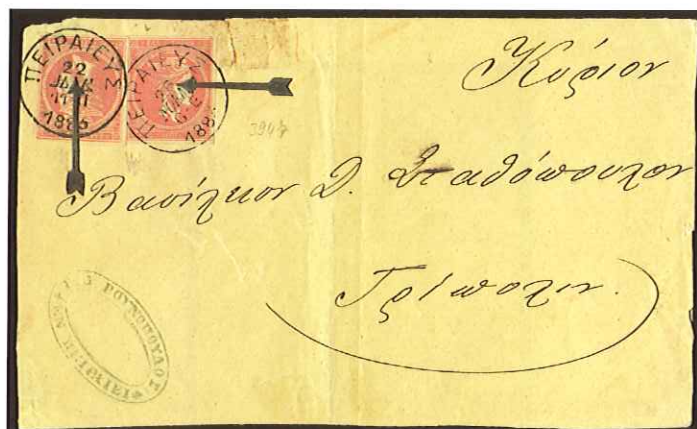 ΠΕΙΡΑΙΕΥΣ
22
1885
ΠΕΙΡΑΙΕΥΣ
188
3947
Κύριον
Βασίλειον Δ. Σταθόπουλον
Τρίπολιν.
ΡΟΥΝΟΠΟΥΛΟΣ